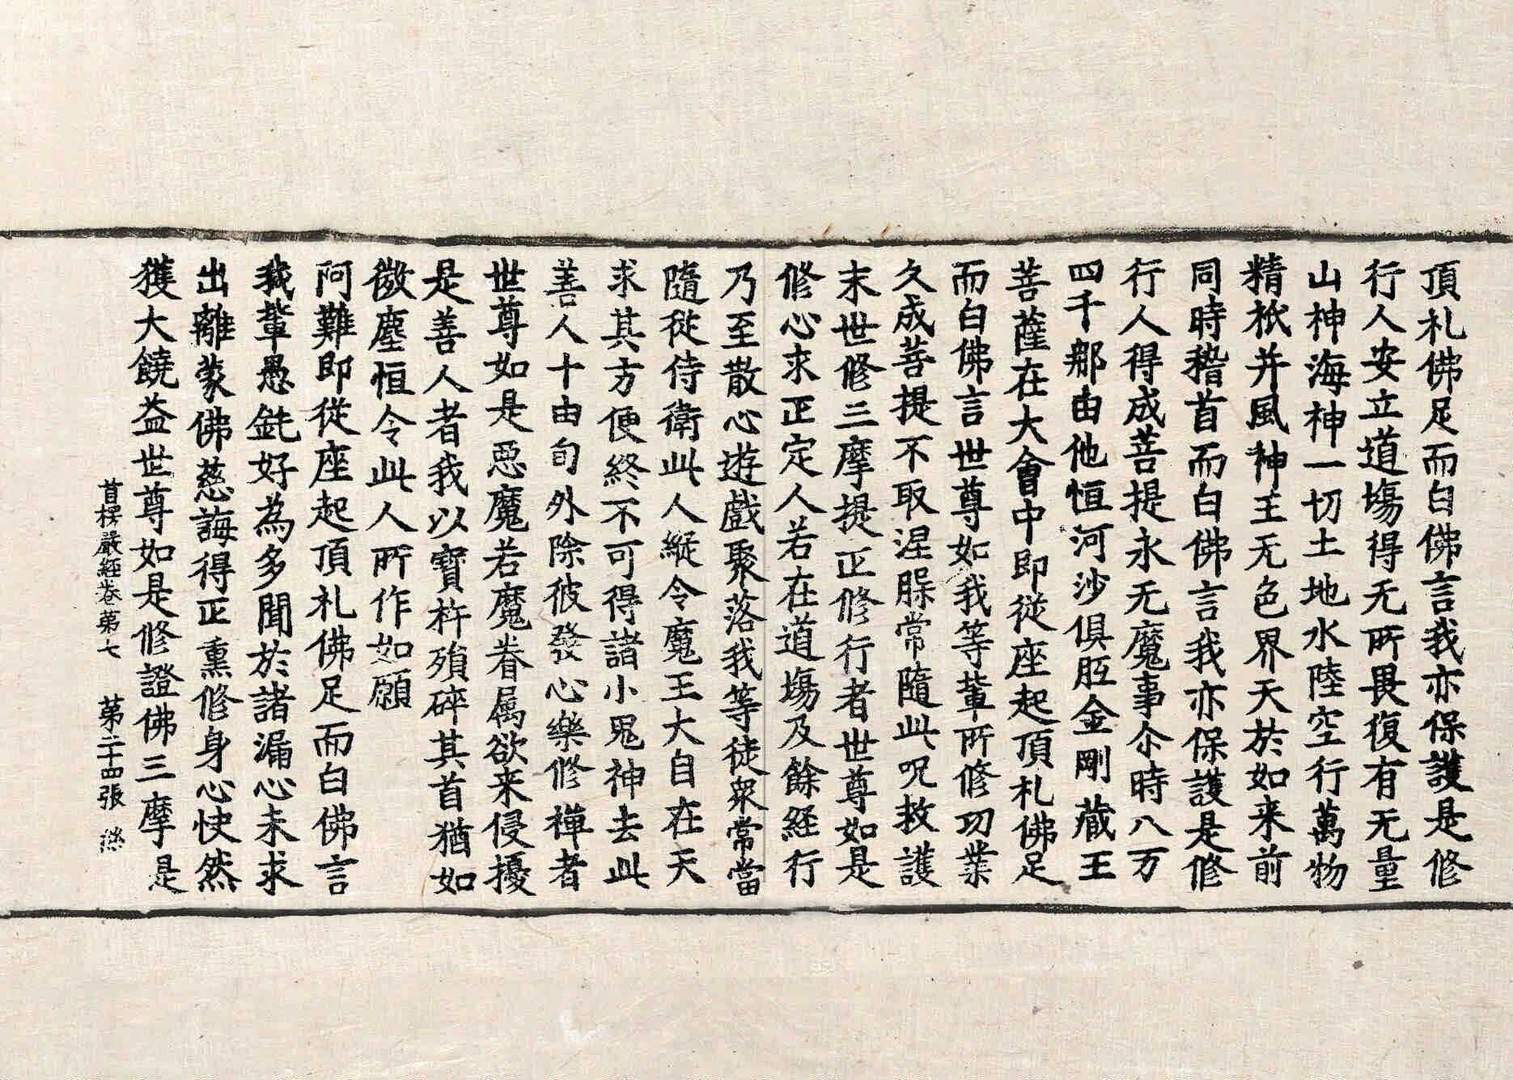 頂礼佛足而白佛言我亦保護是修
行人安立道場得无所畏復有无量
山神海神一切土地水陸空行萬物
精祇并風神王无色界天於如来前
同時稽首而白佛言我亦保護是修
行人得成菩提永无魔事尒時八万
四千那由他恒河沙俱胝金剛藏王
菩薩在大會中即從座起頂礼佛足
而白佛言世尊如我等輩所修功業
久成菩提不取涅槃常隨此呪救護
末世修三摩提正修行者世尊如是
修心求正定人若在道場及餘経行
乃至散心遊戲聚落我等徒衆常當
隨從侍衛此人縱令魔王大自在天
求其方便終不可得諸小鬼神去此
善人十由旬外除彼發心樂修禪者
世尊如是惡魔若魔眷属欲来侵擾
是善人者我以寶杵殞碎其首猶如
微塵恒令此人所作如願
阿難即從座起頂礼佛足而白佛言
我輩愚鈍好為多聞於諸漏心未求
出離蒙佛慈誨得正熏修身心快然
獲大饒益世尊如是修證佛三摩是
首楞嚴経卷第七 第二十四張